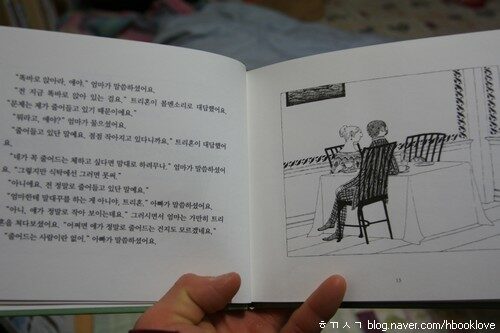 "똑바로 앉아라, 얘야." 엄마가 말씀하셨어요.
"전 지금 똑바로 앉아 있는 걸요." 트리혼이 볼멘소리로 대답했어요.
"문제는 제가 줄어들고 있기 때문이에요."
"뭐라고, 얘야?" 엄마가 물으셨어요.
"줄어들고 있단 말예요. 점점 작아지고 있다니까요." 트리혼이 대답했어
요.
"네가 꼭 줄어드는 체하고 싶다면 말대로 하려무나." 엄마가 말씀하셨어
요. "그렇지만 식탁에선 그러면 못써."
"아니에요. 전 정말로 줄어들고 있단 말예요."
"엄마한테 말대꾸를 하는 게 아니야, 트리혼." 아빠가 말씀하셨어요.
"아니, 얘가 정말로 작아 보이는데요." 그러시면서 엄마는 가만히 트리
혼을 쳐다보셨어요. "어쩌면 얘가 정말로 줄어드는 건지도 모르겠네요."
"줄어드는 사람이란 없어." 아빠가 말씀하셨어요.
13
ㅎㄲㅅㄱ blog.naver.com/hbooklove